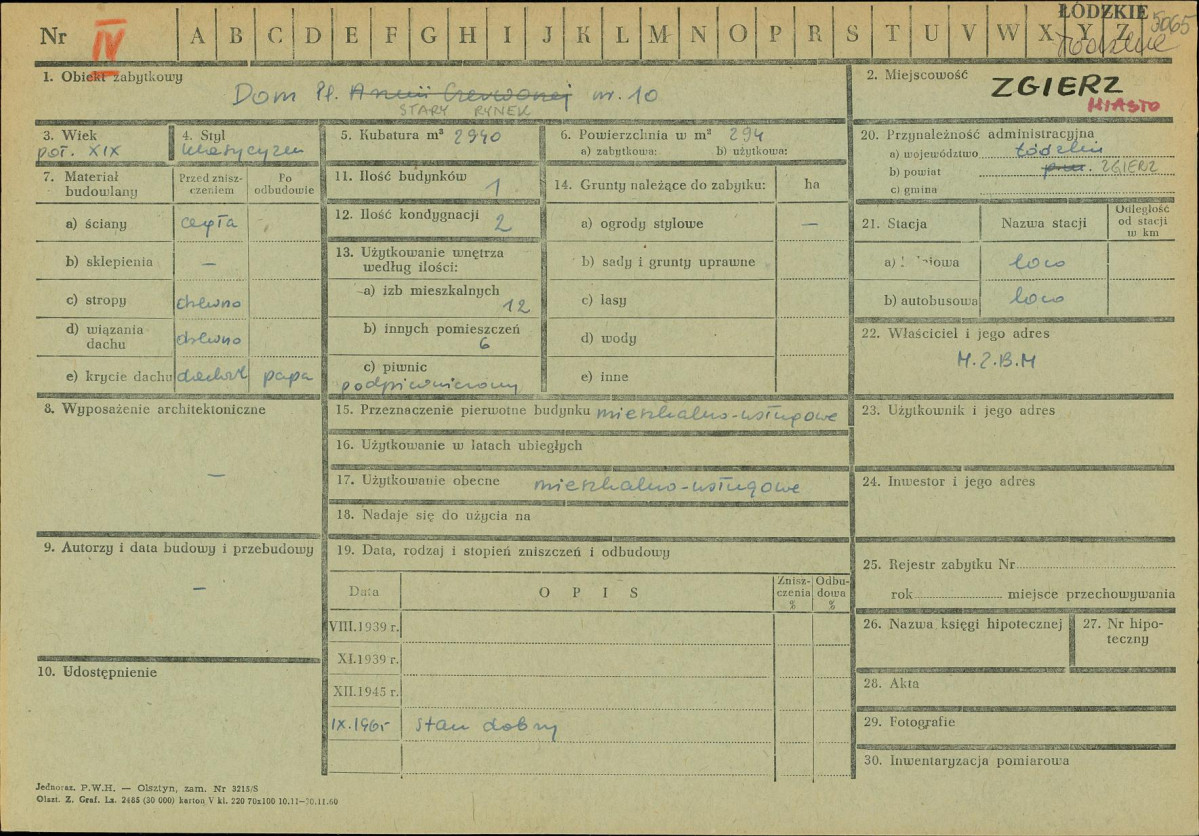 ŁÓDZKIE
5065
Nr IV A B C D E F G H I J K L M N O P R S T U V W X Y Z
1. Obiekt zabytkowy
Dom Pl. Armii Czerwonej nr. 10
STARY RYNEK
2. Miejscowość
ZGIERZ
MIASTO
3. Wiek
poł. XIX
4. Styl
klasycyzm
5. Kubatura m³ 2940
6. Powierzchnia w m² 294
a) zabytkowa: b) użytkowa:
20. Przynależność administracyjna
a) województwo łódzkie
b) powiat ZGIERZ
c) gmina
7. Materiał budowlany
Przed zniszczeniem
Po odbudowie
a) ściany cegła
b) sklepienia —
c) stropy drewno
d) wiązania dachu drewno
e) krycie dachu papa
11. Ilość budynków 1
12. Ilość kondygnacji 2
13. Użytkowanie wnętrza
według ilości:
a) izb mieszkalnych
12
b) innych pomieszczeń
6
c) piwnic
podpiwniczony
14. Grunty należące do zabytku: ha
a) ogrody stylowe —
b) sady i grunty uprawne
c) lasy
d) wody
e) inne
21. Stacja Nazwa stacji
Odległość
od stacji
w km
a) loco
b) autobusowa loco
22. Właściciel i jego adres
M.Z.B.M
8. Wyposażenie architektoniczne
—
15. Przeznaczenie pierwotne budynku mieszkalno-usługowe
16. Użytkowanie w latach ubiegłych
17. Użytkowanie obecne mieszkalno-usługowe
18. Nadaje się do użycia na
23. Użytkownik i jego adres
24. Inwestor i jego adres
9. Autorzy i data budowy i przebudowy
—
19. Data, rodzaj i stopień zniszczeń i odbudowy
Data OPIS
Znisz-
czenia
%
Odbu-
dowa
%
VIII.1939 r.
XI.1939 r.
XII.1945 r.
IX.1965 stan dobry
10. Udostępnienie
25. Rejestr zabytku Nr
rok miejsce przechowywania
26. Nazwa księgi hipotecznej
27. Nr hipo-
teczny
28. Akta
29. Fotografie
30. Inwentaryzacja pomiarowa
Jednoraz. P.W.H. — Olsztyn, zam. Nr 3215/S
Olszt. Z. Graf. Lz. 2485 (30 000) karton V kl. 220 70x100 10.11—30.11.60